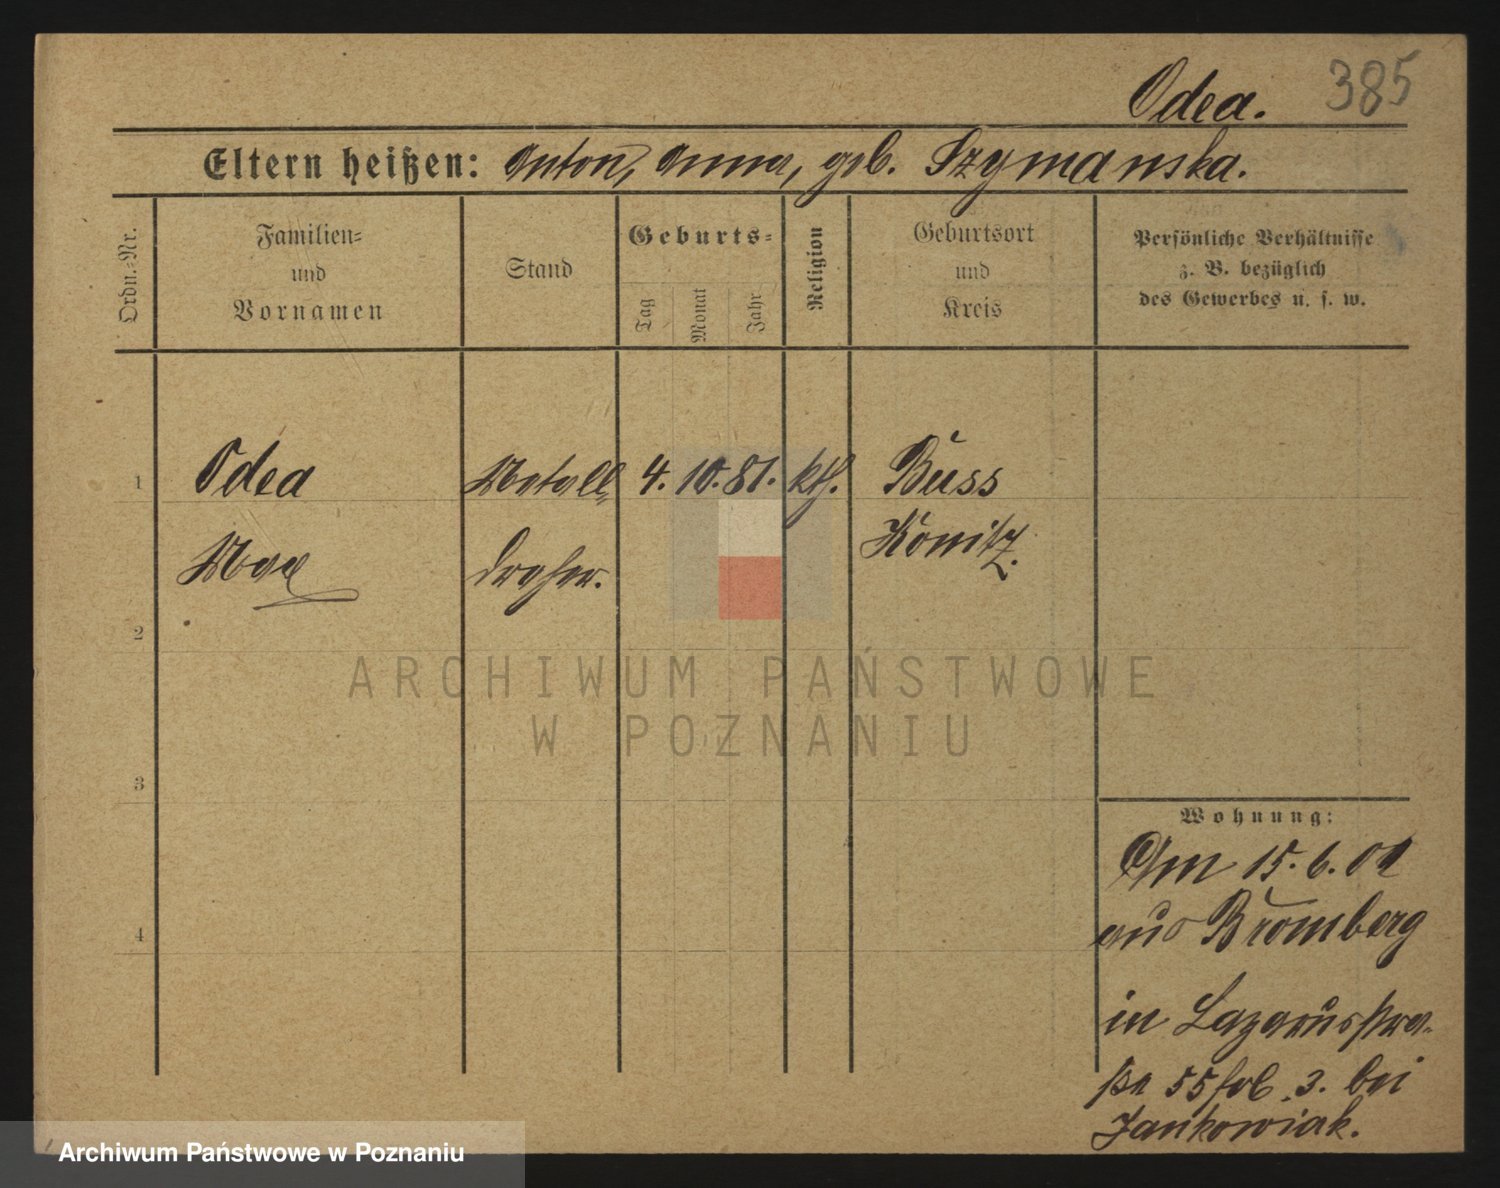 Odea. 385
Eltern heißen: Anton, Anna, geb. Szymanska.
Ordn.-Nr.
Familien-
und
Vornamen
Stand
Geburts-
Tag
Monat
Jahr
Religion
Geburtsort
und
Kreis
Persönliche Verhältnisse
z. B. bezüglich
des Gewerbes u. s. w.
1 Odea Metall- 4. 10. 81. kth. Buss
Max dreher. Konitz.
2
ARCHIWUM PAŃSTWOWE
W POZNANIU
3
Wohnung:
Am 15. 6. 01
4 aus Bromberg
in Lazarusstra-
ße 55 3. bei
Jankowiak.
Archiwum Państwowe w Poznaniu